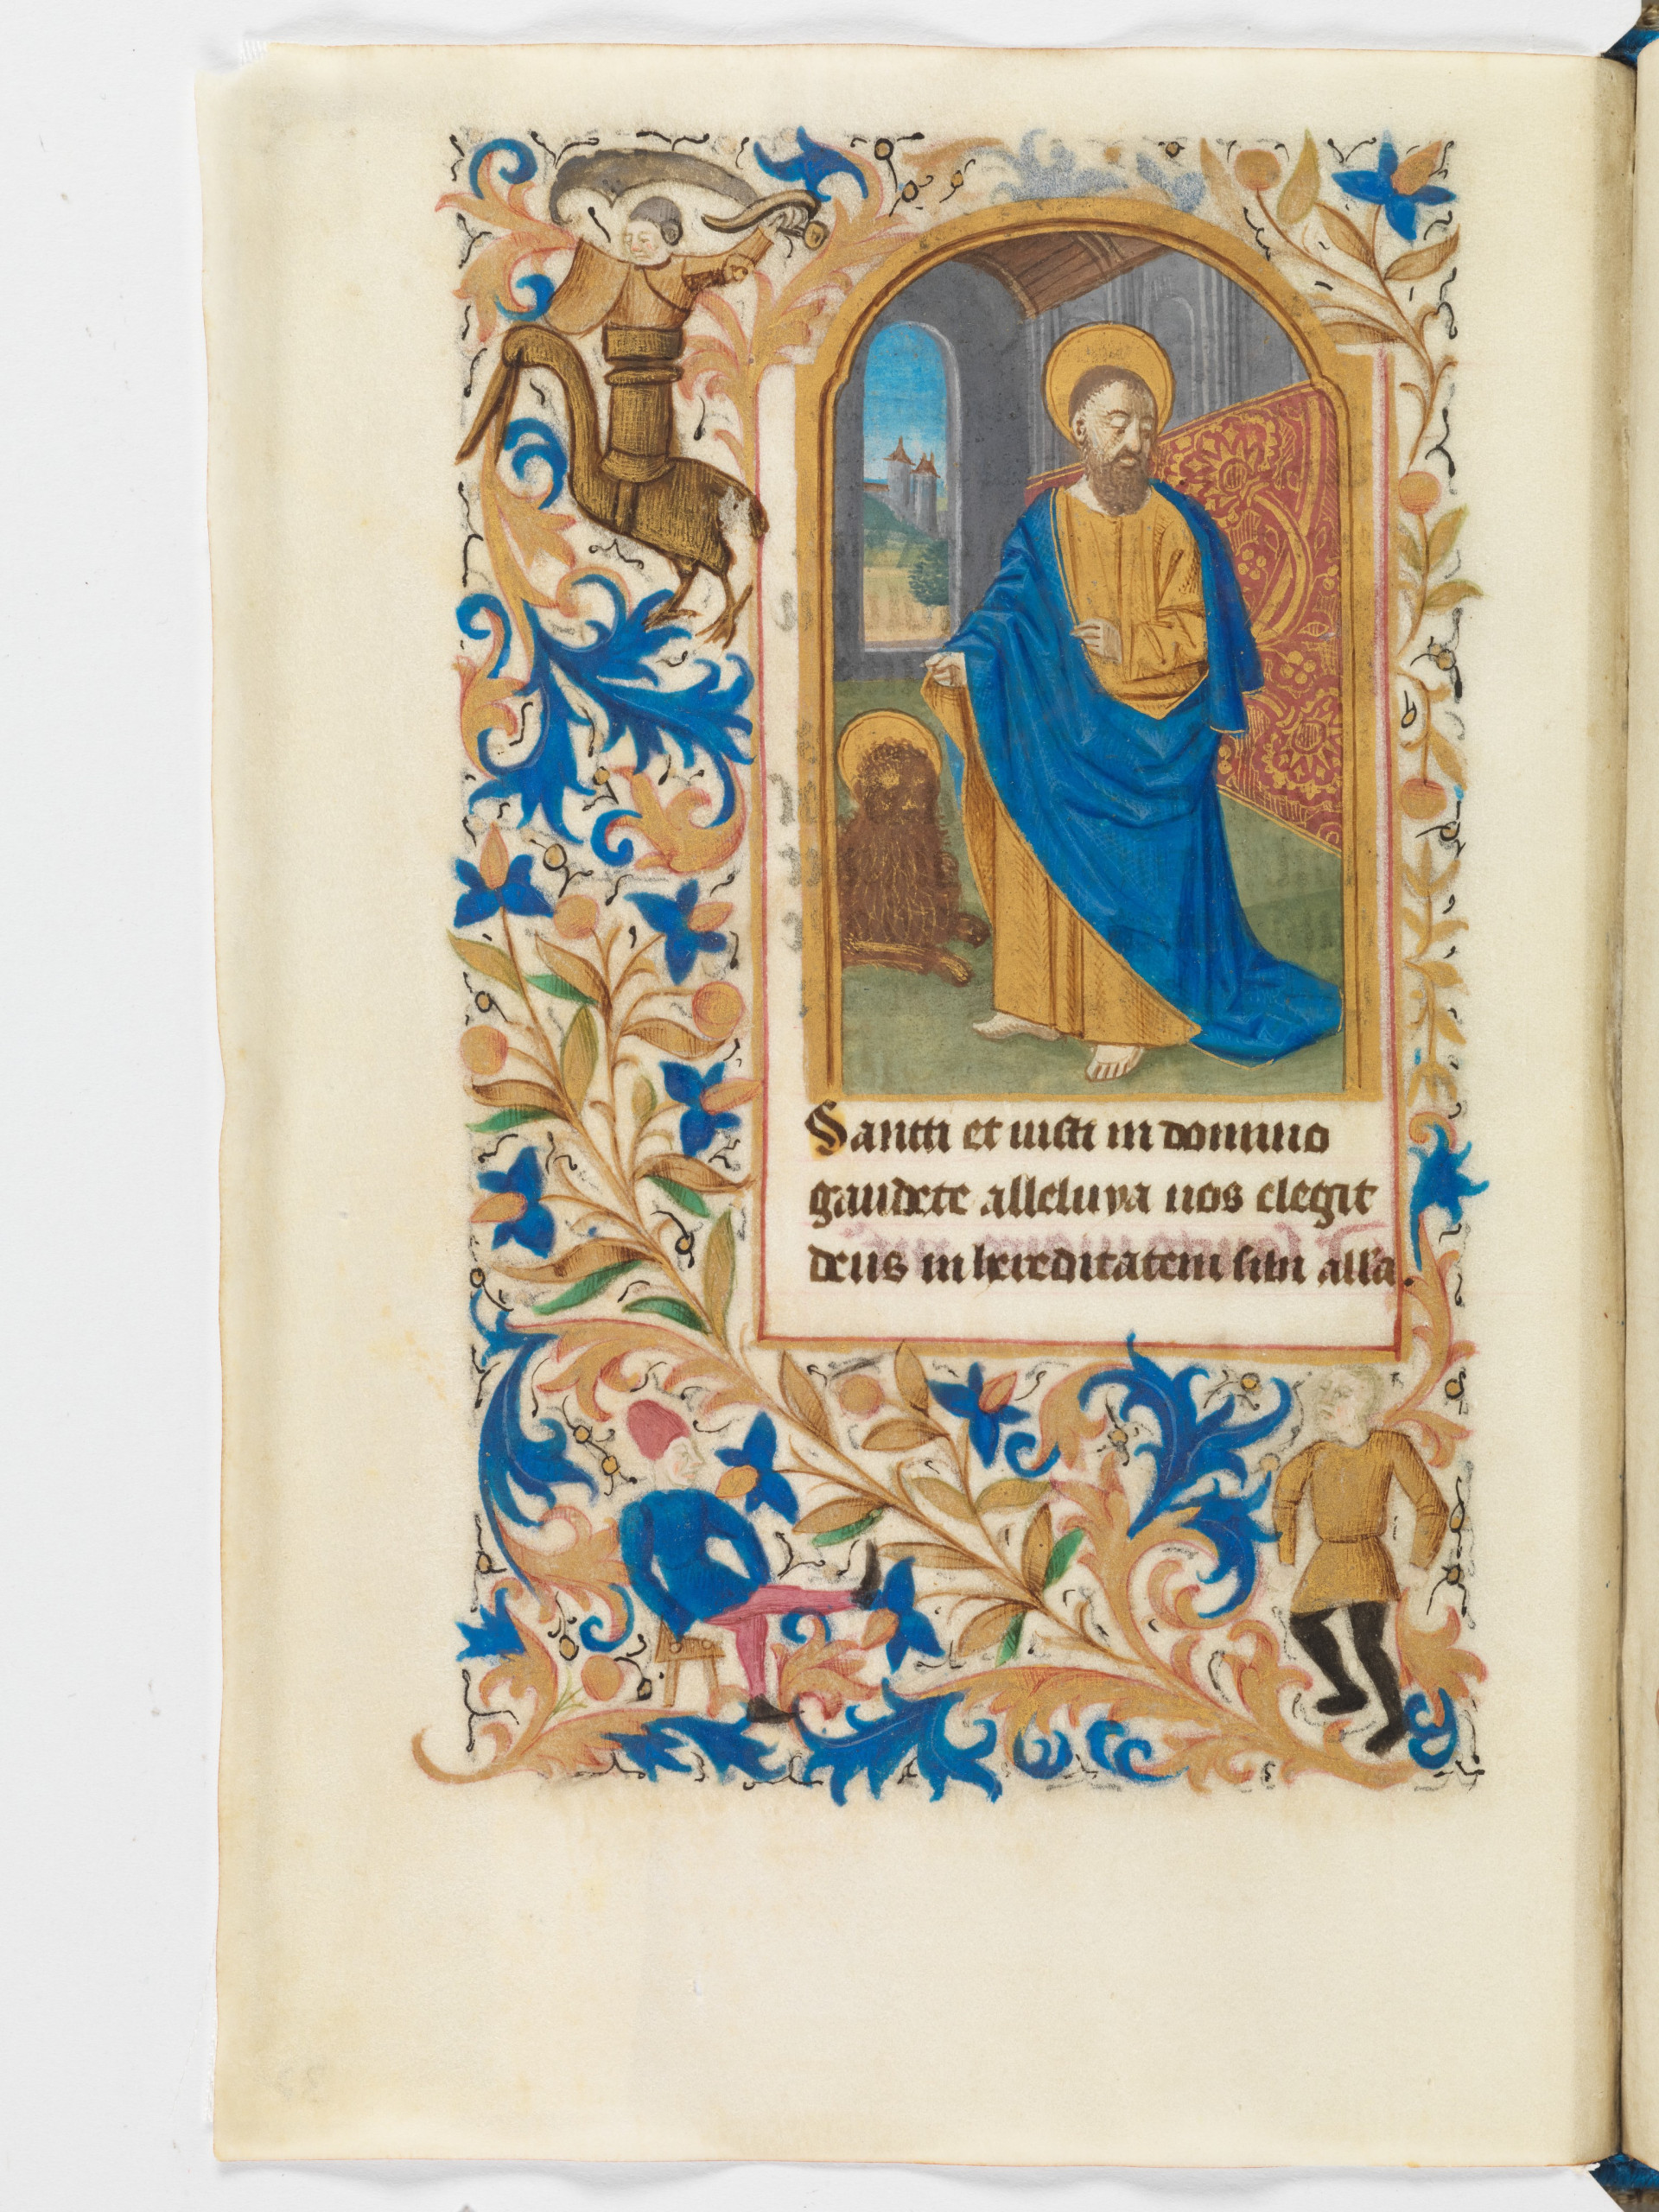 Sancti et iusti in domino
gaudete alleluya uos elegit
deus in hereditatem sibi all'a.